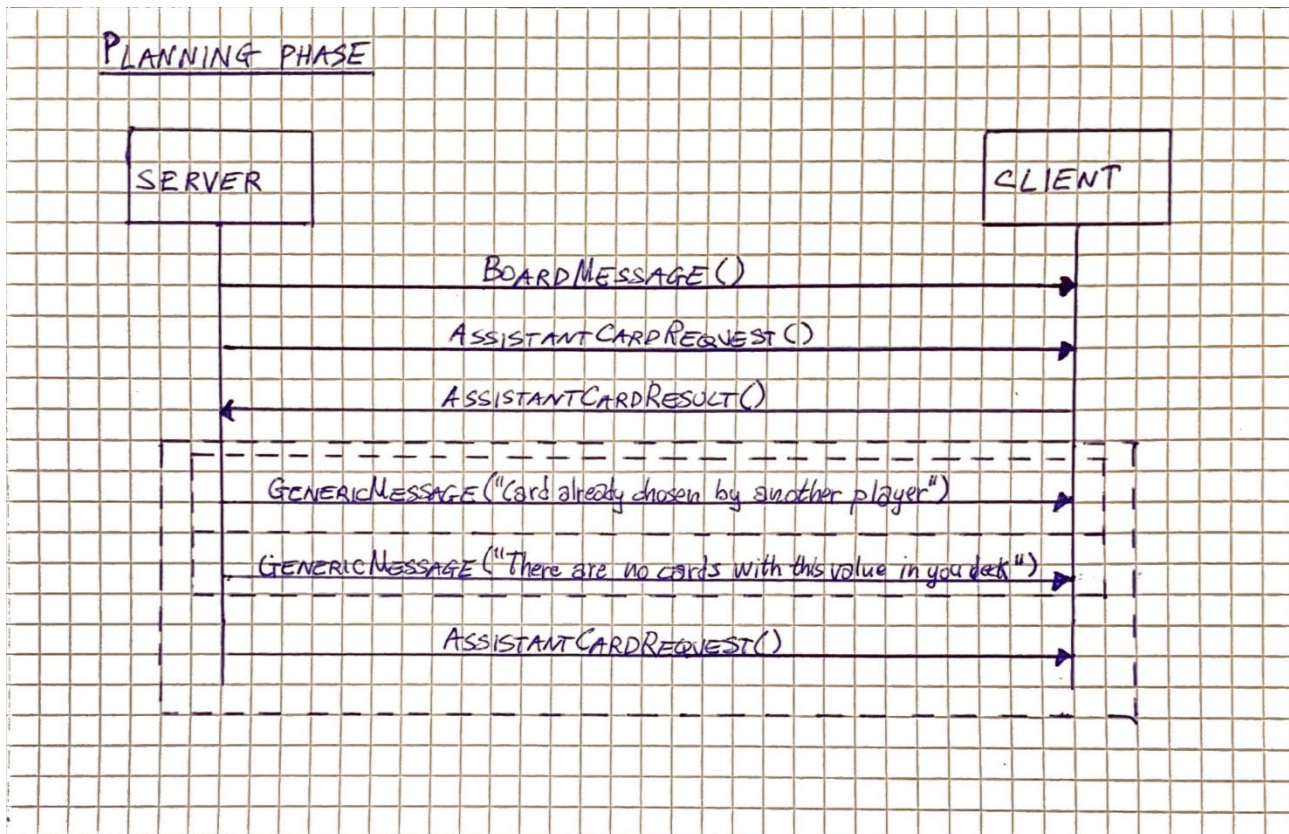 PLANNING PHASE
SERVER
CLIENT
BOARDMESSAGE()
ASSISTANTCARDREQUEST()
ASSISTANTCARDRESULT()
GENERICMESSAGE("Card already chosen by another player")
GENERICMESSAGE("There are no cards with this value in you deck")
ASSISTANTCARDREQUEST()